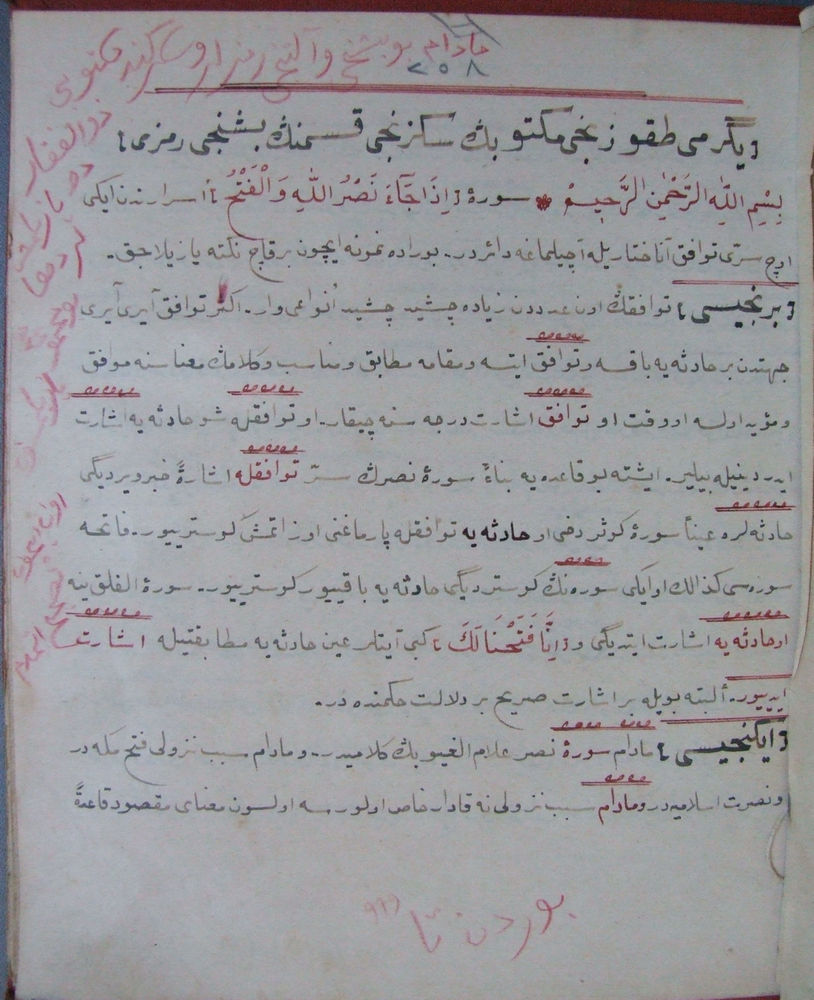 مادام بو بشنجی و آلتنجی رمزلر
۷۵۸
﴿یگرمی طقوزنجی مکتوبڭ سکزنجی قسمنڭ بشنجی رمزی﴾
بِسْمِ اللّٰهِ الرَّحْمٰنِ الرَّحٖیمْ * سورۀ ﴿اِذَا جَآءَ نَصْرُ اللّٰهِ وَالْفَتْحُ﴾ اسرارندن ایکی
اوچ سرّی توافق آناختاریله آچیلماغه دائردر. بوراده نمونه ایچون برقاچ نکته یازیلاجق.
﴿برنجیسی﴾ توافقڭ اون عدددن زیاده چشید چشید أنواعی وار. اکثر توافق آیری آیری
جهتدن بر حادثه یه باقسه و توافق ایتسه و مقامه مطابق و مناسب و کلامڭ معناسنه موافق
و مؤید اولسه او وقت او توافق اشارت درجه سنه چیقار. او توافقله شو حادثه یه اشارت
ایدر دینیله بیلیر. ایشته بو قاعده یه بناءً سورۀ نصرڭ سرّ توافقله اشارةً خبر ویردیگی
حادثه لره عیناً سورۀ کوثر دخی او حادثه یه توافقله پارماغنی اوزاتمش کوستریيور. فاتحه
سوره سی کذالك او ایکی سوره نڭ کوستردیگی حادثه یه باقییور کوستریيور. سورة الفلق ینه
او حادثه یه اشارت ایتدیگی و ﴿اِنَّا فَتَحْنَا لَكَ﴾ کبی آیتلر عین حادثه یه مطابقتیله اشارت
ایدییور. ألبته بویله بر اشارت صریح بر دلالت حکمنده در.
﴿ایکنجیسی﴾ مادام سورۀ نصر علام الغیوبڭ کلامیدر. و مادام سبب نزولی فتح مکه در
و نصرت اسلامیه در و مادام سبب نزولی نه قادار خاص اولورسه اولسون معنای مقصود قاعدةً
بوردن تا